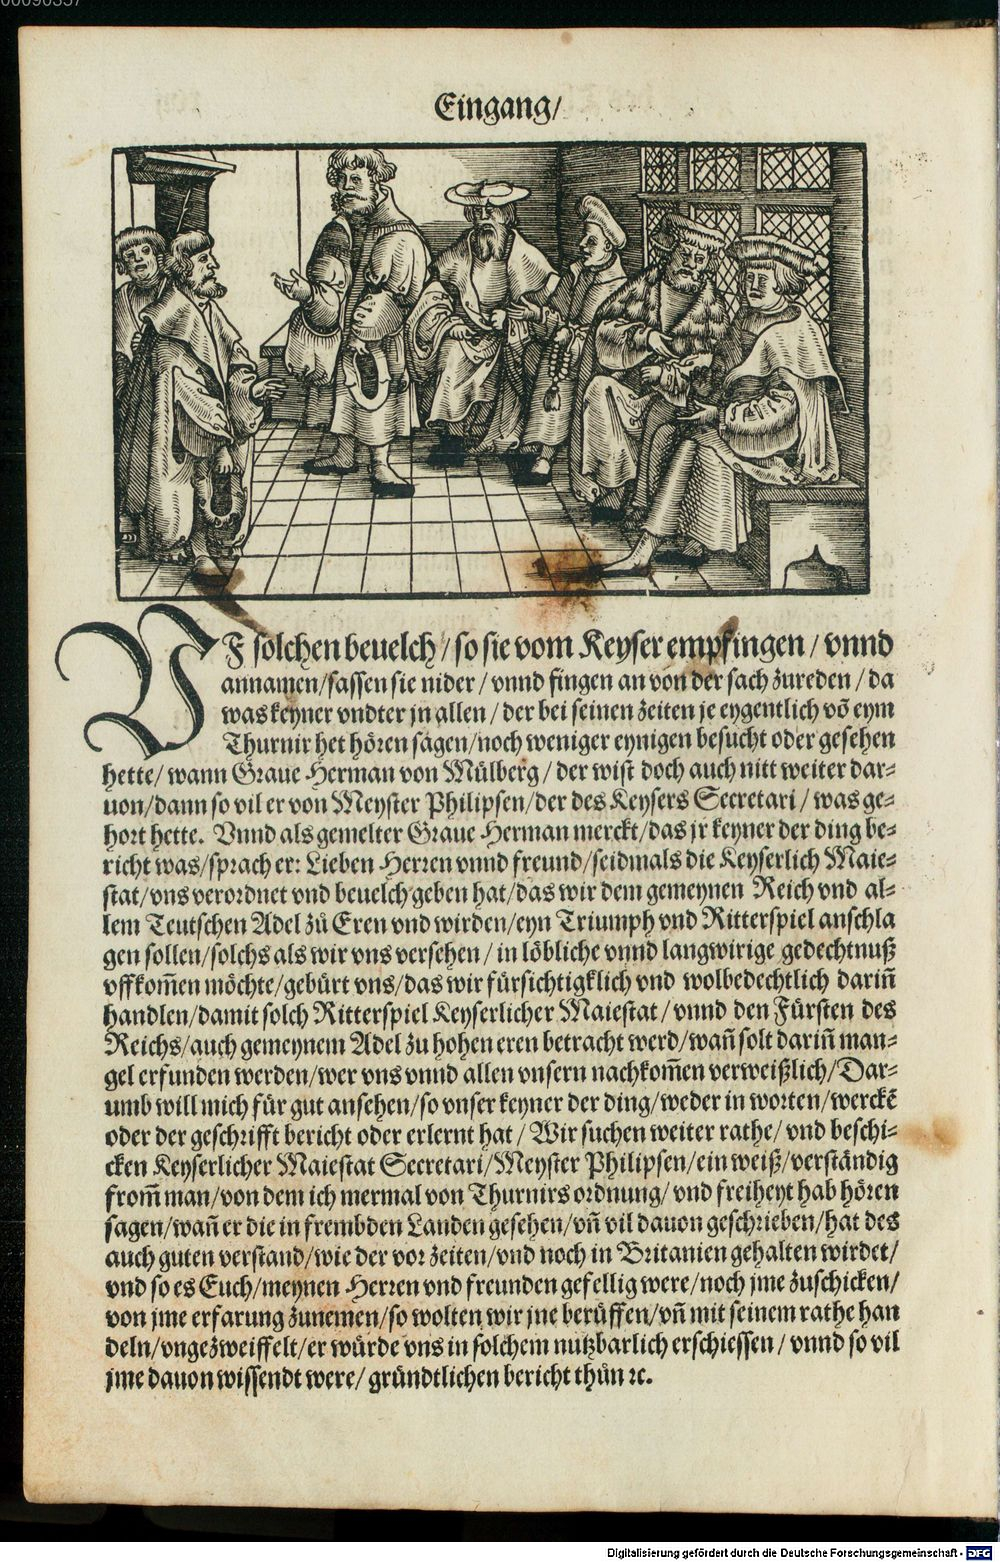 00090357
Eingang/
VF solchen beuelch/ so sie vom Keyser empfingen/ vnnd
annamen/ sassen sie nider/ vnnd fingen an von der sach zureden/ da
was keyner vndter jn allen/ der bei seinen zeiten je eygentlich võ eym
Thurnir het hören sagen/ noch weniger eynigen besucht oder gesehen
hette/ wann Graue Herman von Mülberg/ der wist doch auch nitt weiter dar-
uon/ dann so vil er von Meyster Philipsen/ der des Keysers Secretari/ was ge-
hort hette. Vnnd als gemelter Graue Herman merckt/ das jr keyner der ding be-
richt was/ sprach er: Lieben Herren vnnd freund/ seidmals die Keyserlich Maie-
stat/ vns verordnet vnd beuelch geben hat/ das wir dem gemeynen Reich vnd al-
lem Teutschen Adel zů Eren vnd wirden/ eyn Triumph vnd Ritterspiel anschla
gen sollen/ solchs als wir vns versehen/ in löbliche vnnd langwirige gedechtnuß
vffkom̃en möchte/ gebürt vns/ das wir fürsichtigklich vnd wolbedechtlich darin̄
handlen/ damit solch Ritterspiel Keyserlicher Maiestat/ vnnd den Fürsten des
Reichs/ auch gemeynem Adel zu hohen eren betracht werd/ wan̄ solt darin̄ man-
gel erfunden werden/ wer vns vnnd allen vnsern nachkom̃en verweißlich/ Dar-
umb will mich für gut ansehen/ so vnser keyner der ding/ weder in worten/ werckẽ
oder der geschrifft bericht oder erlernt hat/ Wir suchen weiter rathe/ vnd beschi-
cken Keyserlicher Maiestat Secretari/ Meyster Philipsen/ ein weiß/ verständig
from̃ man/ von dem ich mermal von Thurnirs ordnung/ vnd freiheyt hab hören
sagen/ wan̄ er die in frembden Landen gesehen/ vn̄ vil dauon geschrieben/ hat des
auch guten verstand/ wie der vor zeiten/ vnd noch in Britanien gehalten wirdet/
vnd so es Euch/ meynen Herren vnd freunden gefellig were/ noch jme zuschicken/
von jme erfarung zunemen/ so wolten wir jne berüffen/ vn̄ mit seinem rathe han
deln/ vngezweiffelt/ er würde vns in solchem nutzbarlich erschiessen/ vnnd so vil
jme dauon wissendt were/ gründtlichen bericht thůn ꝛc.
Digitalisierung gefördert durch die Deutsche Forschungsgemeinschaft - DFG